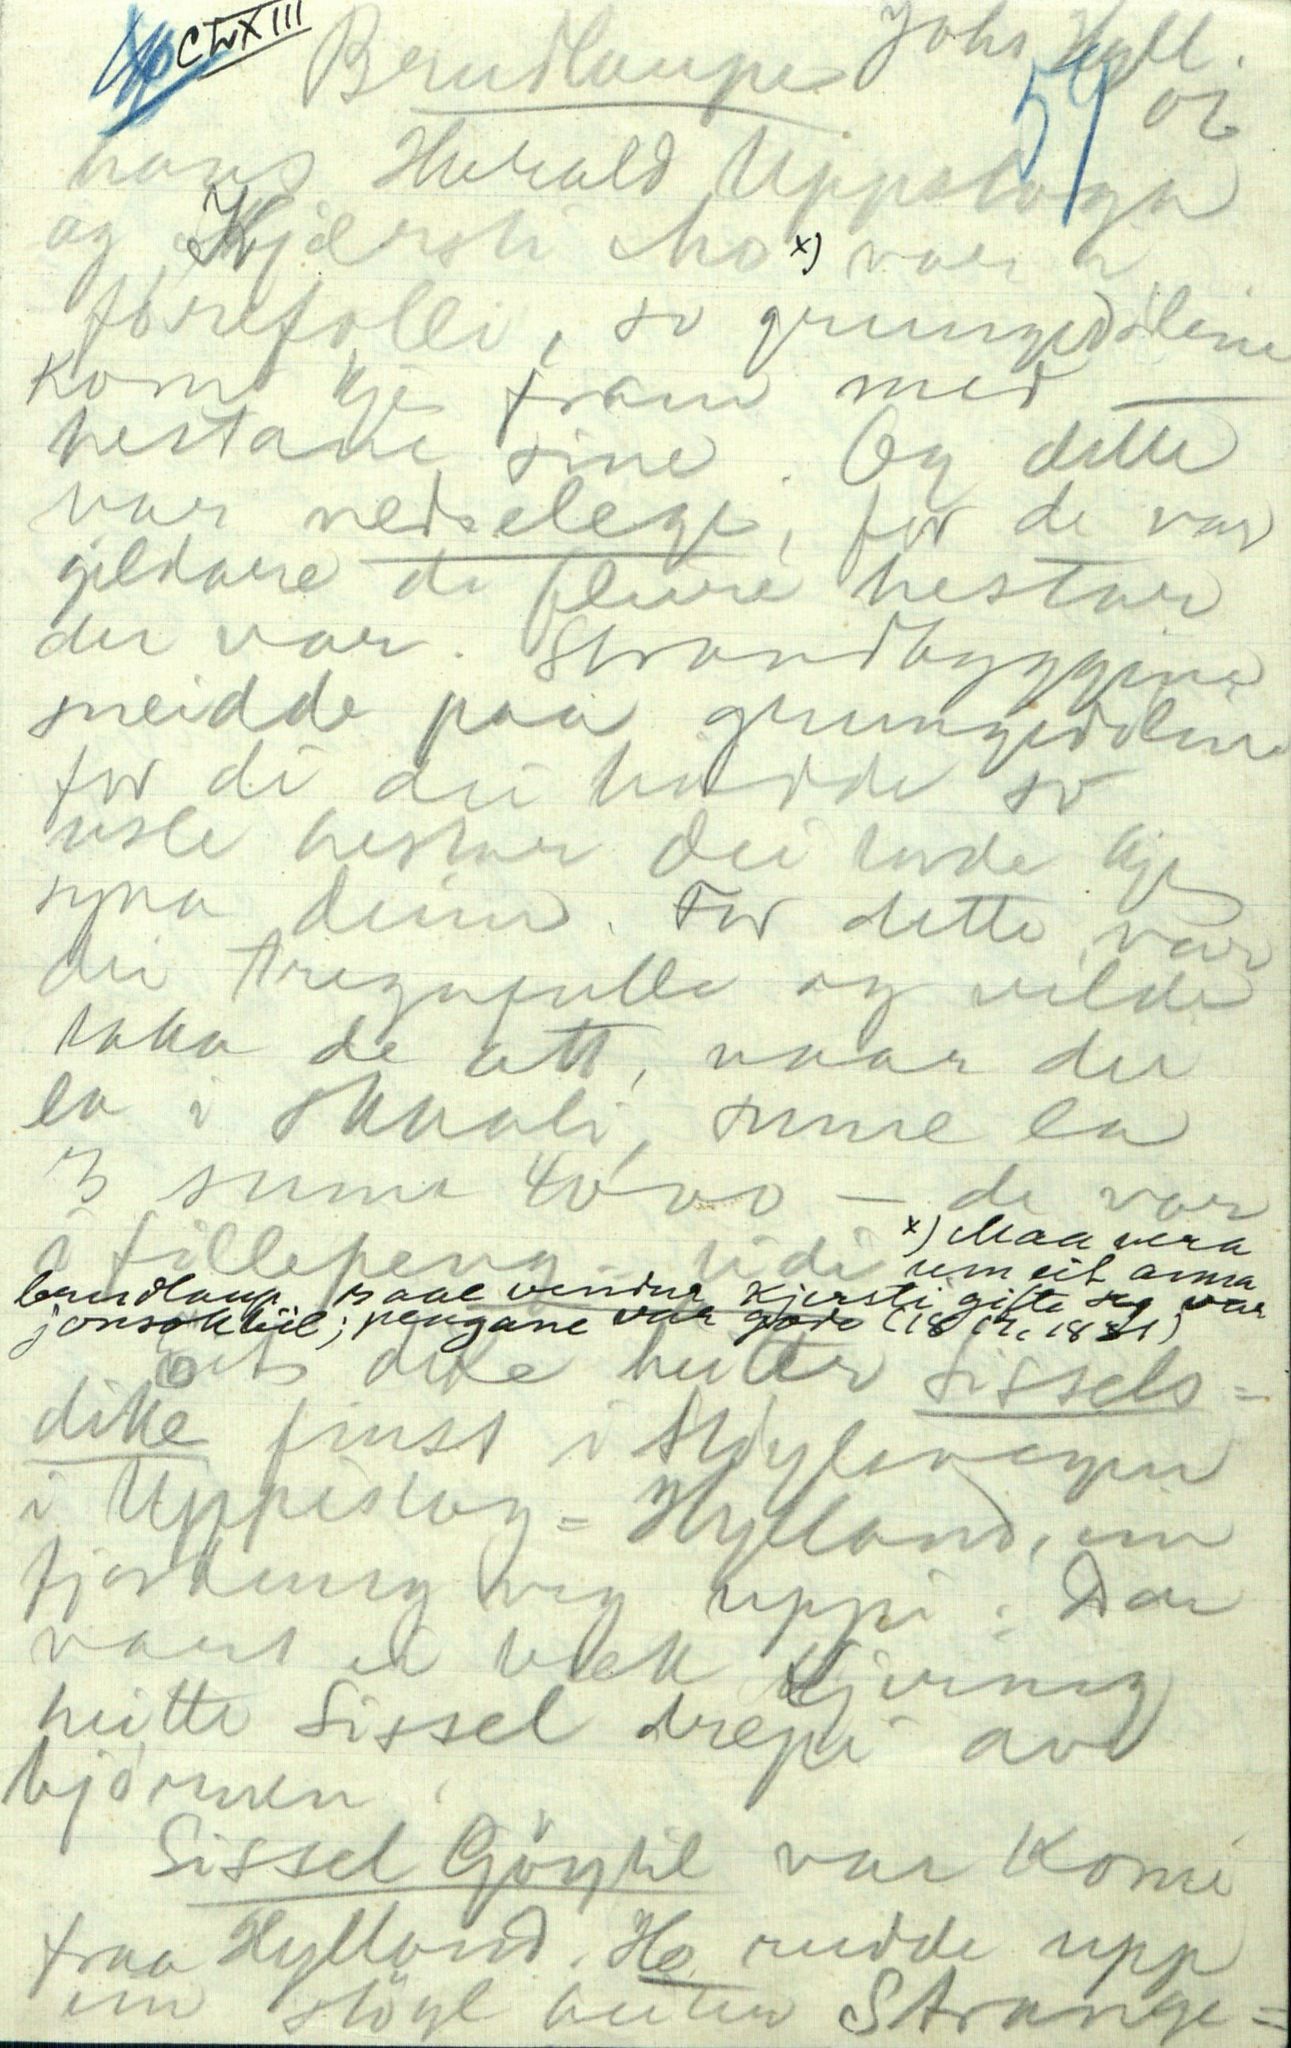 CLXXIII
Johs Hyll.
59 02
Brudlaupe
hans Harald Uppstoga
og Kjersti Mo x) var i
förefalli, so grungedöline
kom kje fram med
hestane sine. Og dette
var nedselege, for de var
gildare di fleire hestar
der var. Strandbyggjine
sneidde paa grungedöline
for di dei hadde so
usle hestar dei torde kje
syna deim. For dette var
dei tregafulle og vilde
taka de att, naar dei
la i skaali, sume la
3 sume 40'oo — de var
i fillepeng-tidi
x) Maa vera
um eit anna
brudlaup, naar Kjersti gifte seg var
jonsokbil; pengane var gode (18 1881)
Eit dike heiter Sissels-
dike finst i Stöylsvegen
i Uppistog-Hylland, ein
fjordung veg uppi. Dar
vart ei tekk kjering
heitte Sissel drepi av
björnen.
Sissel Göytil var komi
fraa Hylland. Ho rudde upp
ein stöyl heiter Strange-